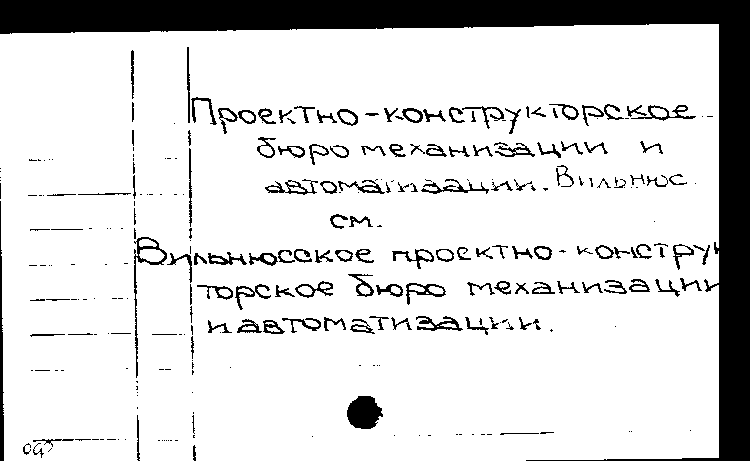 Проектно-конструкторское
бюро механизации и
автоматизации. Вильнюс
см.
Вильнюсское проектно-конструк
торское бюро механизации
и автоматизации.